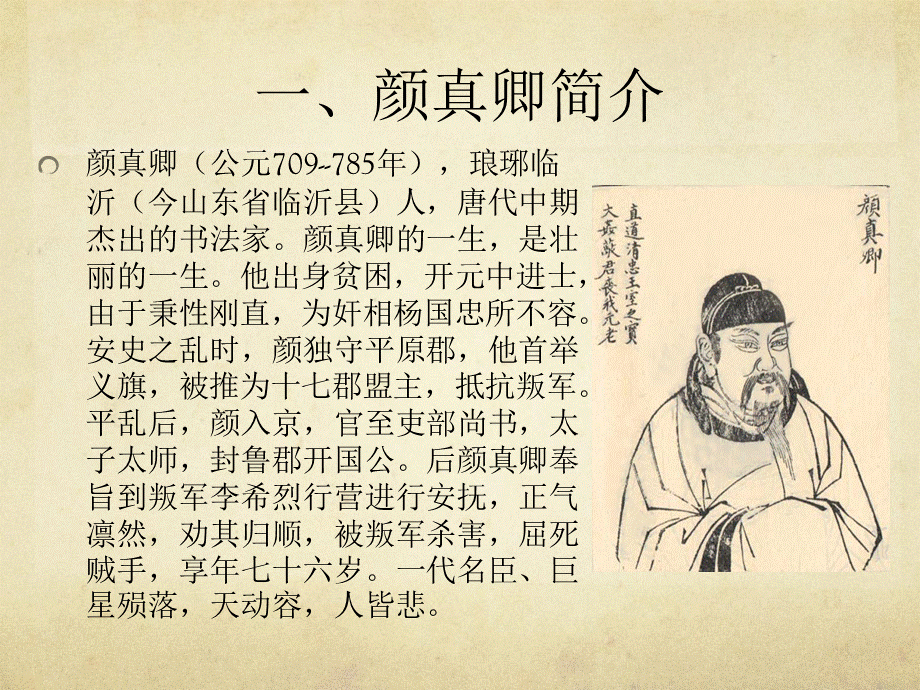 一、颜真卿简介
颜真卿（公元709--785年），琅琊临
沂（今山东省临沂县）人，唐代中期
杰出的书法家。颜真卿的一生，是壮
丽的一生。他出身贫困，开元中进士，
由于秉性刚直，为奸相杨国忠所不容。
安史之乱时，颜独守平原郡，他首举
义旗，被推为十七郡盟主，抵抗叛军。
平乱后，颜入京，官至吏部尚书，太
子太师，封鲁郡开国公。后颜真卿奉
旨到叛军李希烈行营进行安抚，正气
凛然，劝其归顺，被叛军杀害，屈死
贼手，享年七十六岁。一代名臣、巨
星殒落，天动容，人皆悲。
顏真卿
直道清忠王室之寶
大姦蔽君喪我元老